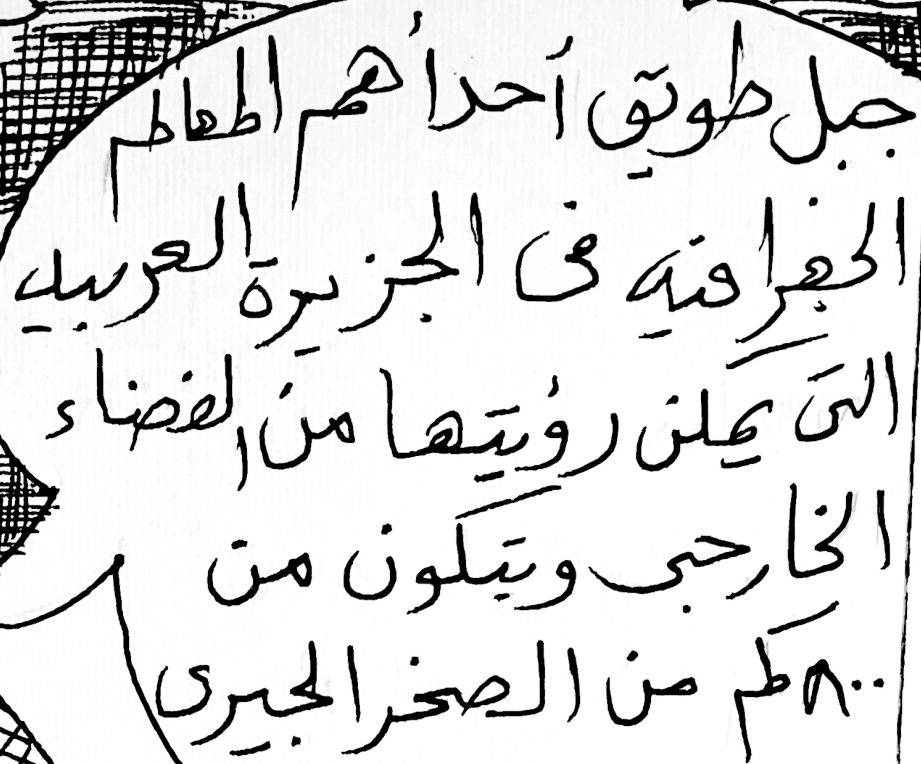 جبل طويق أحد أهم المعالم
الجغرافية في الجزيرة العربية
التي يمكن رؤيتها من الفضاء
الخارجي ويتكون من
٨٠٠ كم من الصخر الجيرى